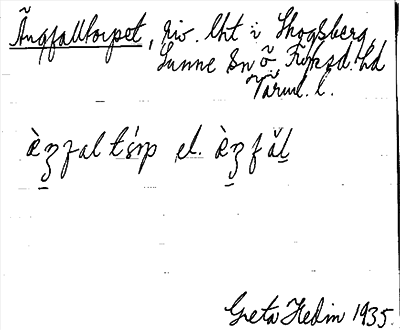 Ängfalltorpet, riv. lht i Skogsberg,
Sunne sn ö. Fryksd. hd
Värml. l.
èʒfal tśrp el. èʒfăḻ
Greta Hedin 1935.